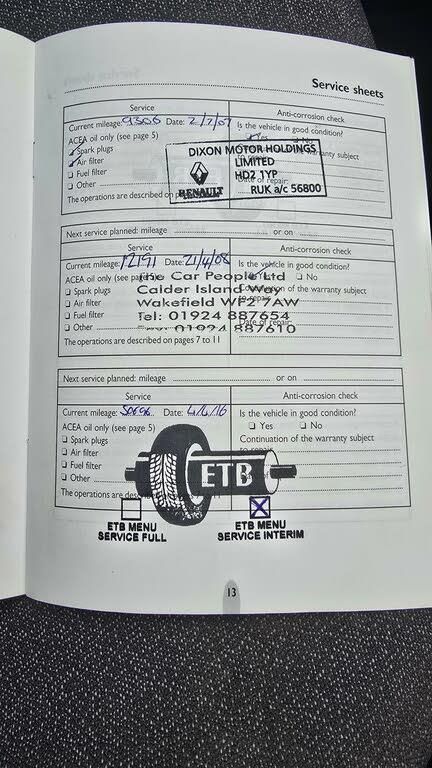 Service sheets
Service
Anti-corrosion check
Current mileage: 9306 Date: 2/7/07
Is the vehicle in good condition?
ACEA oil only (see page 5)
Yes
No
Spark plugs
Air filter
Fuel filter
Other
The operations are described on
DIXON MOTOR HOLDINGS
LIMITED
HD2 1YP
RENAULT
RUK a/c 56800
Next service planned: mileage
or on
Service
Anti-corrosion check
Current mileage: 12191 Date: 21/4/08
Is the vehicle in good condition?
ACEA oil only (see page
No
Spark plugs
Air filter
Fuel filter
Other
The operations are described on pages 7 to 11
The Car People Ltd
Calder Island Way
Wakefield WF2 7AW
Tel: 01924 887654
01924 887610
Date of repair:
Next service planned: mileage
or on
Service
Anti-corrosion check
Current mileage: Date: 4/4/16
Is the vehicle in good condition?
ACEA oil only (see page 5)
Yes
No
Spark plugs
Continuation of the warranty subject
to repair
Air filter
Fuel filter
Other
The operations are
11
ETB
ETB MENU
SERVICE FULL
ETB MENU
SERVICE INTERIM
13